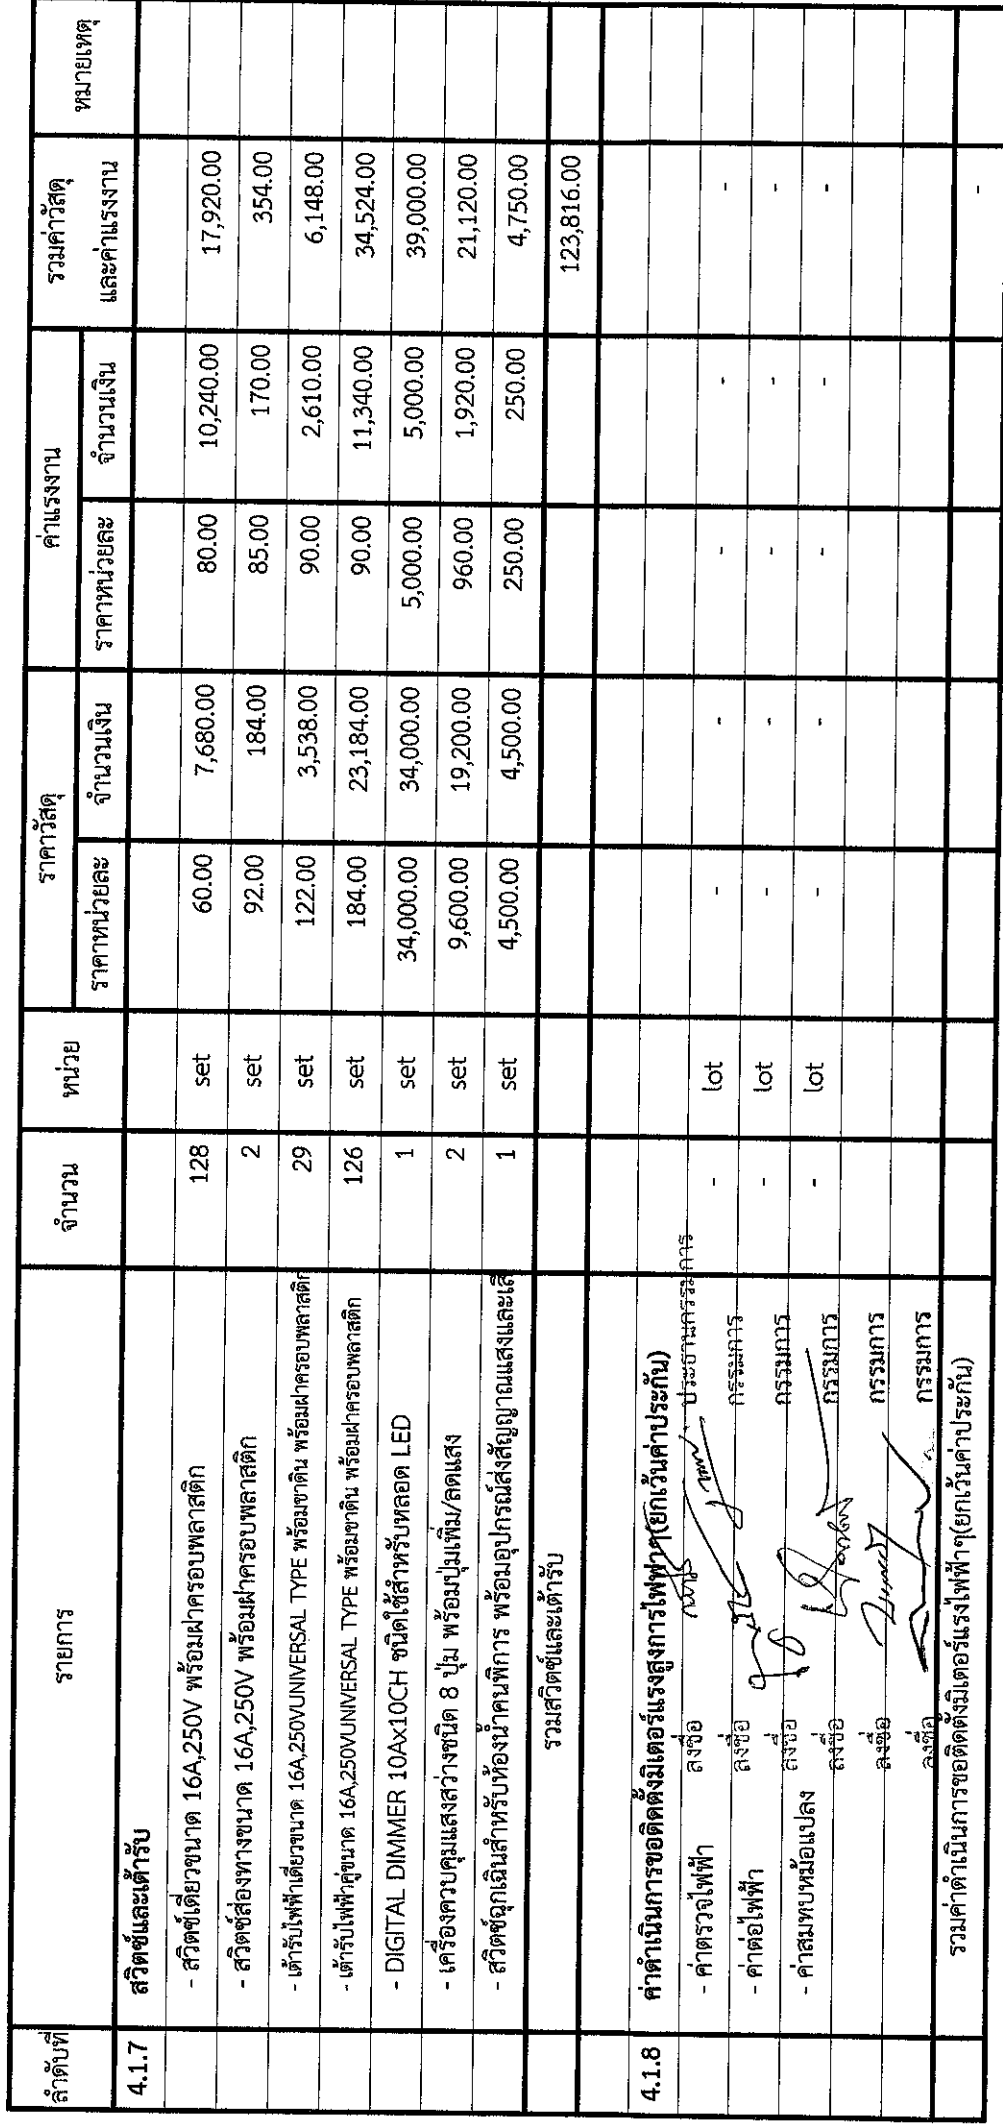 ลำดับที่ รายการ จำนวน หน่วย ราคาวัสดุ ค่าแรงงาน รวมค่าวัสดุ หมายเหตุ
ราคาหน่วยละ จำนวนเงิน ราคาหน่วยละ จำนวนเงิน และค่าแรงงาน
4.1.7 สวิตช์และเต้ารับ
- สวิตช์เดี่ยวขนาด 16A,250V พร้อมฝาครอบพลาสติก 128 set 60.00 7,680.00 80.00 10,240.00 17,920.00
- สวิตช์สองทางขนาด 16A,250V พร้อมฝาครอบพลาสติก 2 set 92.00 184.00 85.00 170.00 354.00
- เต้ารับไฟฟ้าเดี่ยวขนาด 16A,250VUNIVERSAL TYPE พร้อมขาดิน พร้อมฝาครอบพลาสติก 29 set 122.00 3,538.00 90.00 2,610.00 6,148.00
- เต้ารับไฟฟ้าคู่ขนาด 16A,250VUNIVERSAL TYPE พร้อมขาดิน พร้อมฝาครอบพลาสติก 126 set 184.00 23,184.00 90.00 11,340.00 34,524.00
- DIGITAL DIMMER 10Ax10CH ชนิดใช้สำหรับหลอด LED 1 set 34,000.00 34,000.00 5,000.00 5,000.00 39,000.00
- เครื่องควบคุมแสงสว่างชนิด 8 ปุ่ม พร้อมปุ่มเพิ่ม/ลดแสง 2 set 9,600.00 19,200.00 960.00 1,920.00 21,120.00
- สวิตช์ฉุกเฉินสำหรับห้องน้ำคนพิการ พร้อมอุปกรณ์ส่งสัญญาณแสงและเสี 1 set 4,500.00 4,500.00 250.00 250.00 4,750.00
รวมสวิตช์และเต้ารับ 123,816.00
4.1.8 ค่าดำเนินการขอติดตั้งมิเตอร์แรงสูงการไฟฟ้าๆ(ยกเว้นค่าประกัน)
- ค่าตรวจไฟฟ้า ลงชื่อ ประธานกรรมการ - lot - - - - -
- ค่าต่อไฟฟ้า ลงชื่อ กรรมการ - lot - - - - -
- ค่าสมทบหม้อแปลง ลงชื่อ กรรมการ - lot - - - - -
ลงชื่อ กรรมการ
ลงชื่อ กรรมการ
ลงชื่อ กรรมการ
รวมค่าดำเนินการขอติดตั้งมิเตอร์แรงไฟฟ้าๆ(ยกเว้นค่าประกัน) -